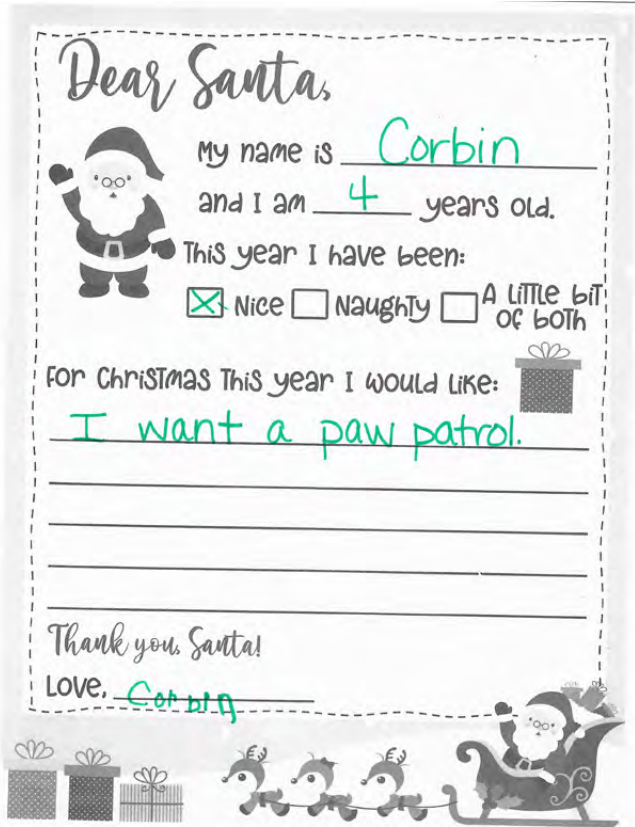 Dear Santa,
My name is Corbin
and I am 4 years old.
This year I have been:
Nice Naughty A little bit
of both
For Christmas this year I would like:
I want a paw patrol.
Thank you, Santa!
Love, Corbin